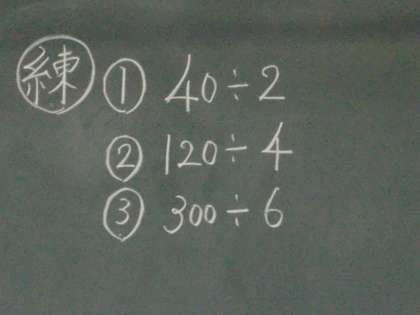 練 ① 40÷2
② 120÷4
③ 300÷6